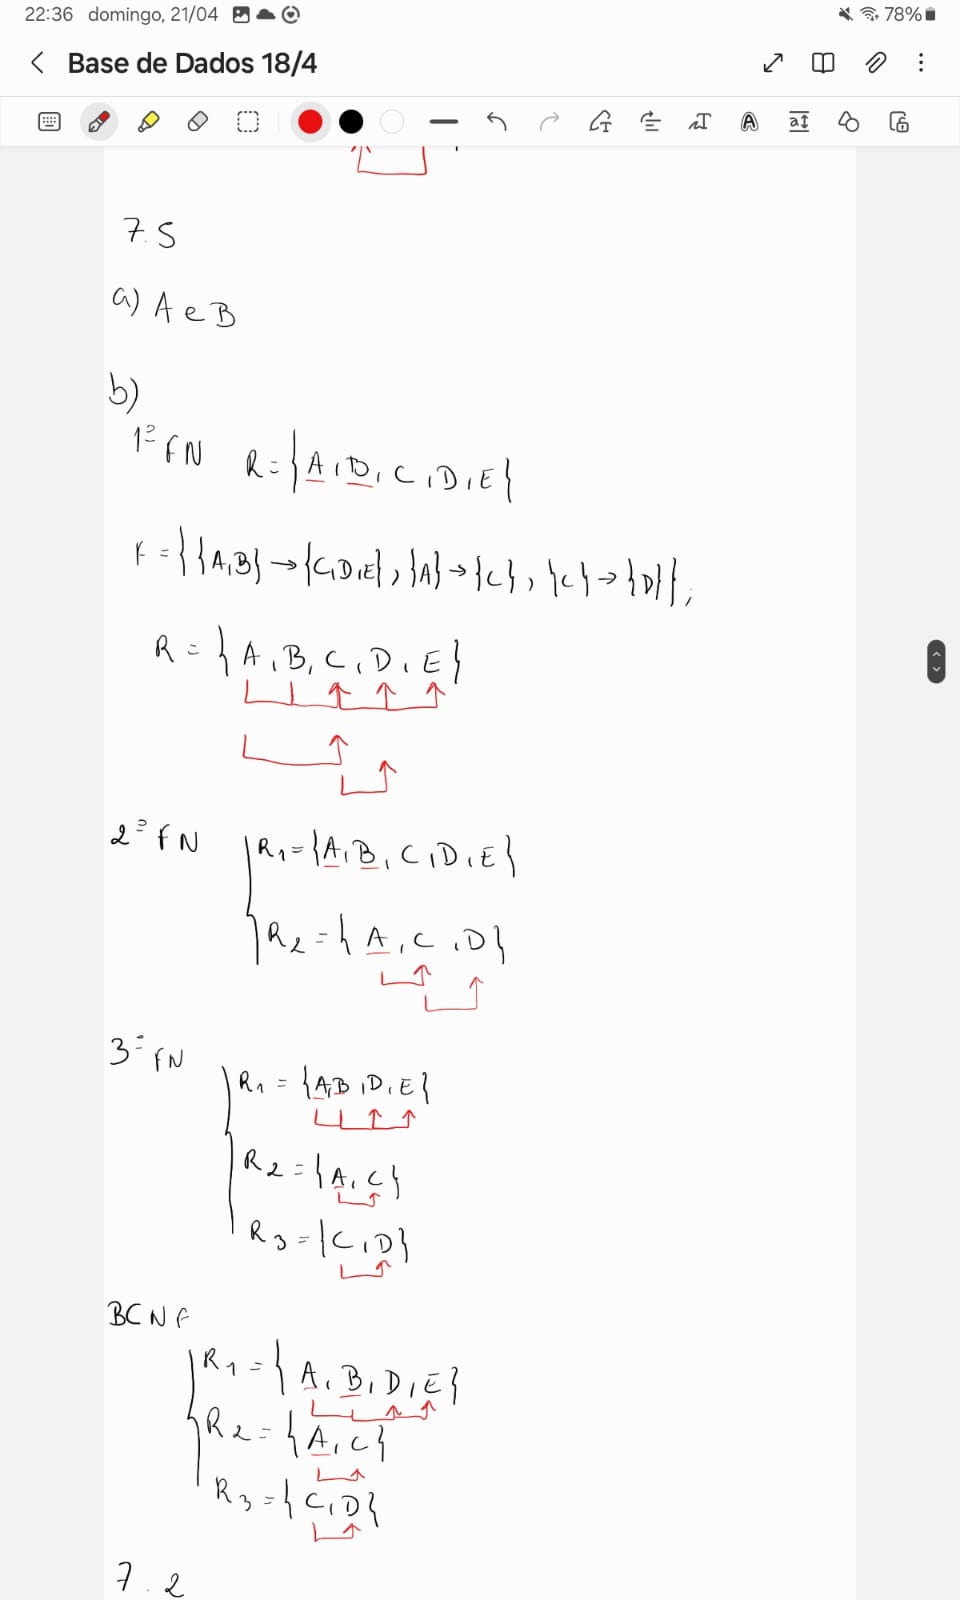 22:36 domingo, 21/04 78%
Base de Dados 18/4
7.5
a) A e B
b)
1º FN R = {A, B, C, D, E}
F = {{A,B} → {C,D,E}, {A} → {C}, {C} → {D}};
R = {A, B, C, D, E}
2º FN R1 = {A, B, C, D, E}
R2 = {A, C, D}
3º FN
R1 = {A,B, D, E}
R2 = {A, C}
R3 = {C, D}
BCNF
R1 = {A, B, D, E}
R2 = {A, C}
R3 = {C, D}
7.2